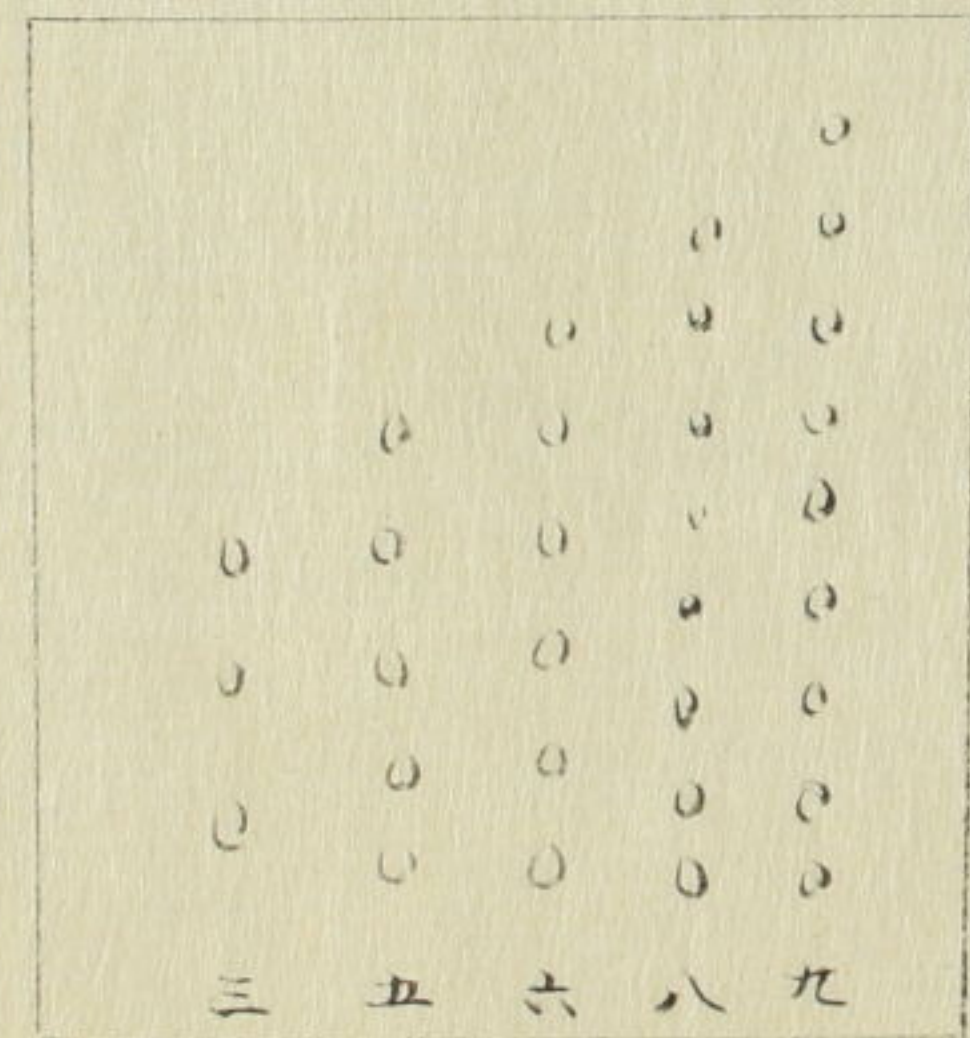 九
八
六
五
三